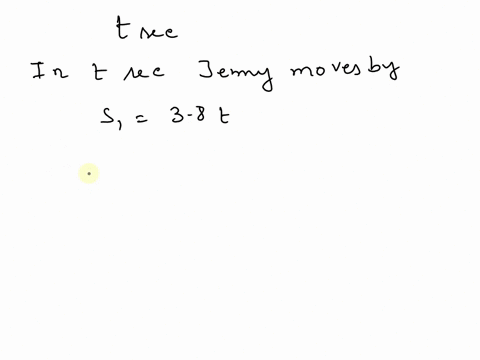 t sec
In t sec Jenny moves by
S₁ = 3.8 t